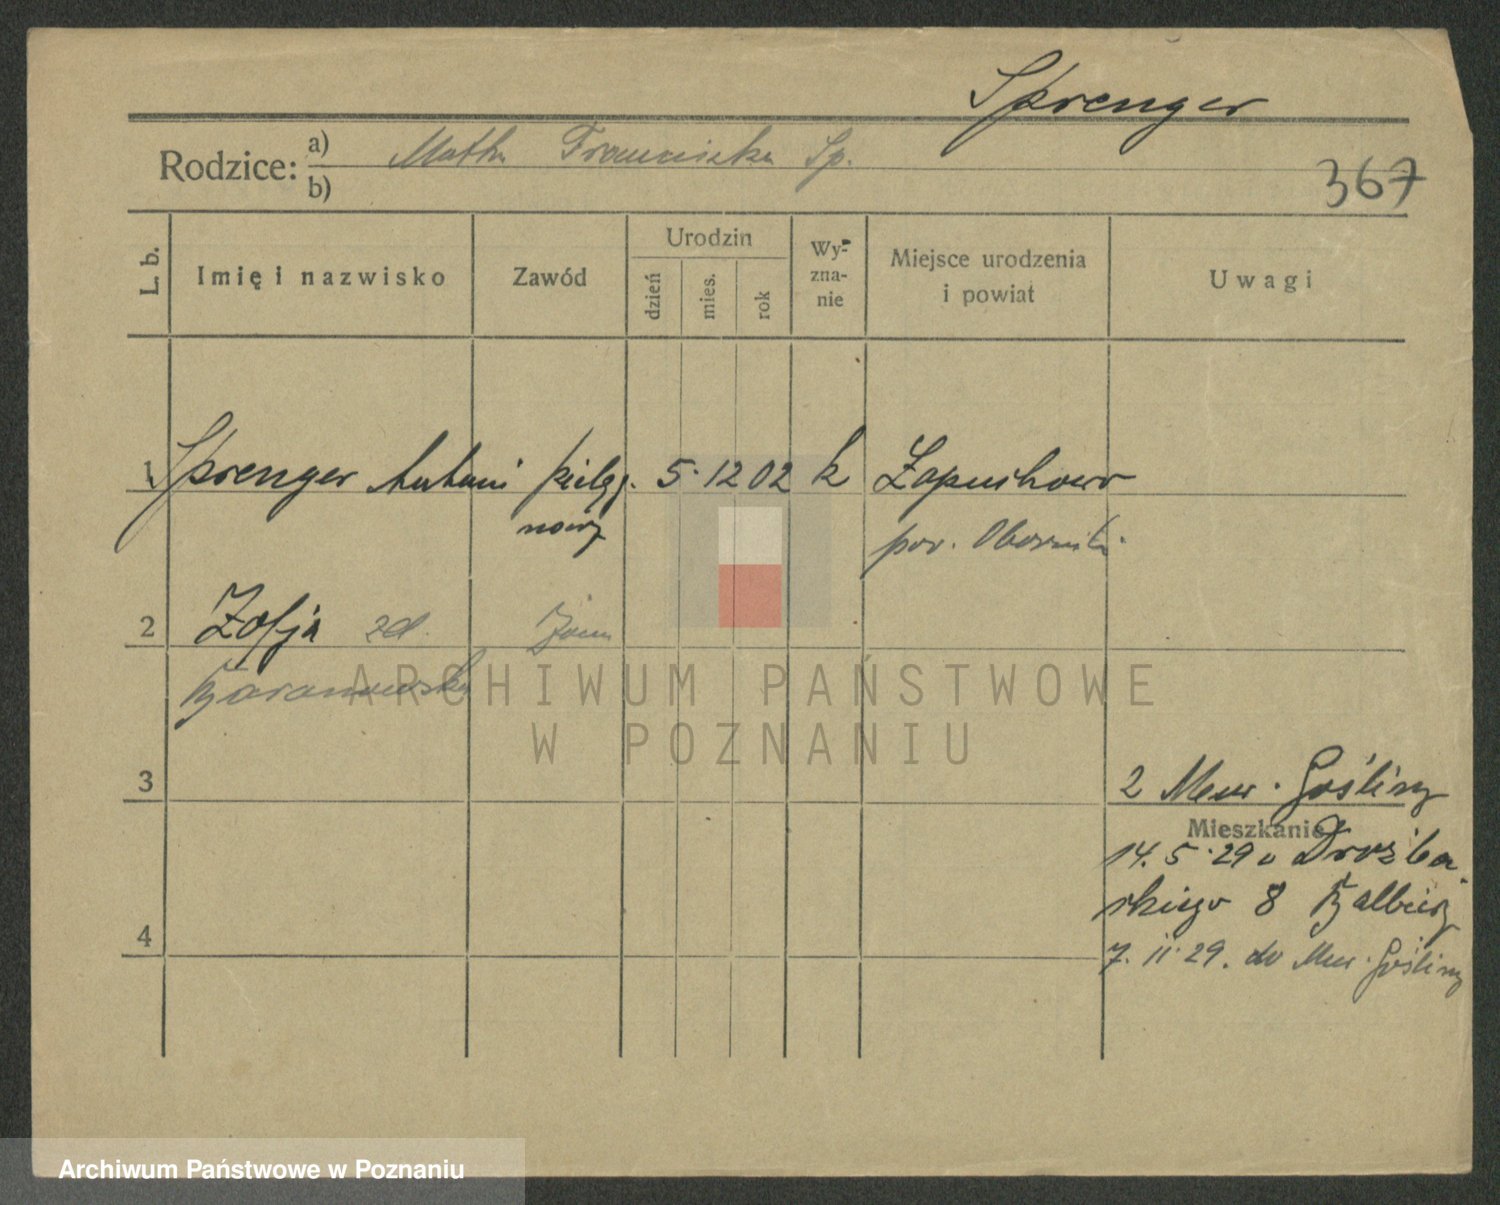 Sprenger
Rodzice: a) Matka Franciszka Sp.
b)
367
L. b. Imię i nazwisko Zawód Urodzin dzień mies. rok Wyznanie Miejsce urodzenia i powiat Uwagi
1 Sprenger Antoni pielęg. 5. 12 02 k Łopuchowo
nowy
pow. Oborniki
2 Zofja zd. żona
Baranowska
ARCHIWUM PAŃSTWOWE
W POZNANIU
3
z Mur. Gośliny
Mieszkanie
14. 5. 29 u Drożba-
skiego 8
4
7. 11. 29. do Mur. Gośliny
Archiwum Państwowe w Poznaniu